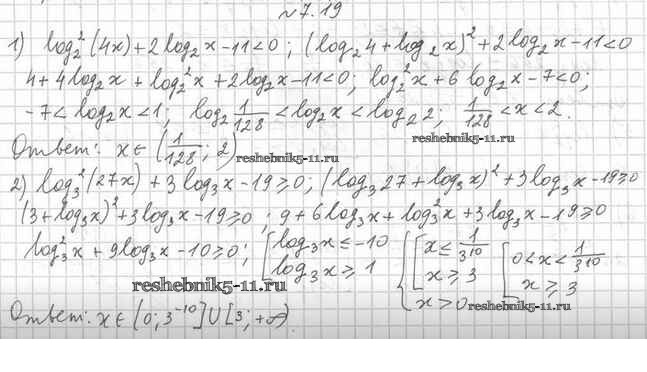 №7.19
1) log₂²(4x)+2log₂x-11<0; (log₂4+log₂x)²+2log₂x-11<0
4+4log₂x+log₂²x+2log₂x-11<0; log₂²x+6log₂x-7<0;
-7<log₂x<1; log₂ 1/128 <log₂x<log₂2; 1/128 <x<2.
reshebnik5-11.ru
Ответ: x∈(1/128; 2)
reshebnik5-11.ru
2) log₃²(27x)+3log₃x-19≥0; (log₃27+log₃x)²+3log₃x-19≥0
(3+log₃x)²+3log₃x-19≥0; 9+6log₃x+log₃²x+3log₃x-19≥0
log₃²x+9log₃x-10≥0; [log₃x≤-10 log₃x≥1 {[x≤ 1/3¹⁰ x≥3 x>0 [0<x<1/3¹⁰ x≥3
reshebnik5-11.ru
reshebnik5-11.ru
Ответ: x∈(0; 3⁻¹⁰]∪[3; +∞).